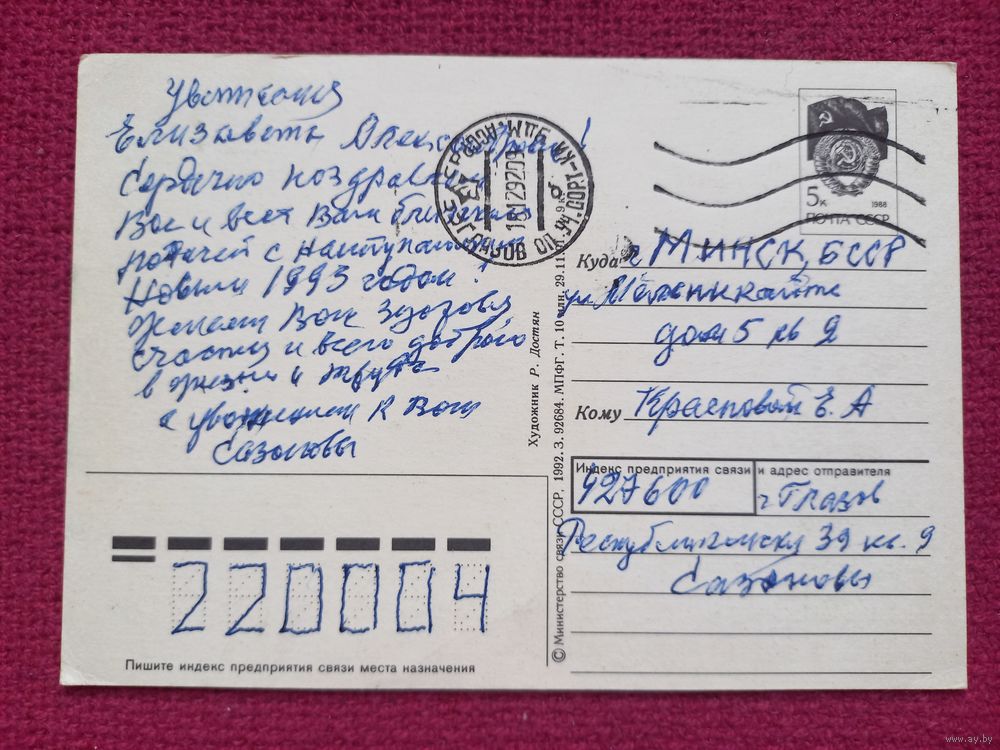 Уважаемая
Елизавета Александровна!
Сердечно поздравляем
Вас и всех Ваших близких
с наступающим
Новым 1993 годом!
Желаем Вам здоровья
счастья и всего доброго
в жизни и труде
с уважением к Вам
Сазоновы
5к
1988
ПОЧТА СССР
Куда г. МИНСК, БССР
ул.
дом 5 кв 9
Кому Красновой Е. А
Индекс предприятия связи и адрес отправителя
427600 г Глазов
39 кв. 9
Сазоновы
220004
Пишите индекс предприятия связи места назначения
Художник Р. Достян
© Министерство связи СССР, 1992. З. 92684. МПФГ. Т. 10 млн. 29.11.
ГЛАЗОВ
181292
www.ay.by